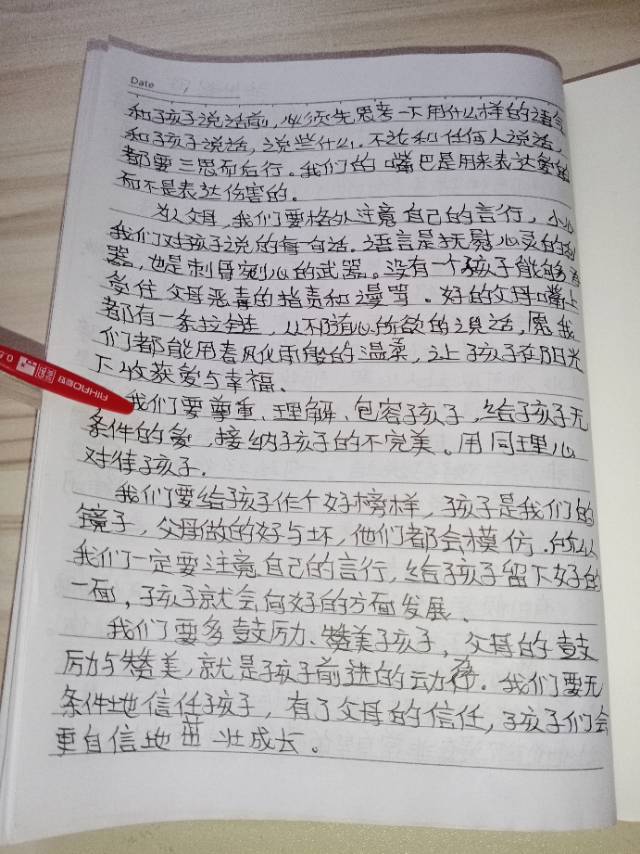 Date
和孩子说话前,必须先思考一下用什么样的语气
和孩子说话,说些什么。不论和任何人说话,
都要三思而后行。我们的嘴巴是用来表达爱的
而不是表达伤害的。
为人父母,我们要格外注意自己的言行,小心
我们对孩子说的每一句话。语言是抚慰心灵的
器,也是刺骨剜心的武器。没有一个孩子能够
受住父母恶毒的指责和谩骂。好的父母嘴上
都有一条拉链,从不随心所欲的说话,愿我
们都能用春风化雨般的温柔,让孩子在阳光
下收获爱与幸福。
我们要尊重、理解、包容孩子,给孩子无
条件的爱,接纳孩子的不完美。用同理心
对待孩子。
我们要给孩子作个好榜样,孩子是我们的
镜子,父母做的好与坏,他们都会模仿。所以
我们一定要注意自己的言行,给孩子留下好的
一面,孩子就会向好的方面发展。
我们要多鼓励、赞美孩子,父母的鼓
励与赞美,就是孩子前进的动力。我们要无
条件地信任孩子,有了父母的信任,孩子们会
更自信地茁壮成长。
AIHAO